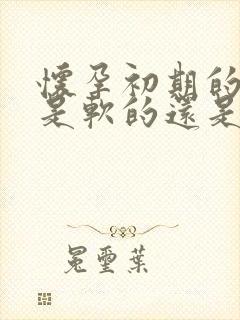 懷孕初期的
是軟的還是
冕璽葉